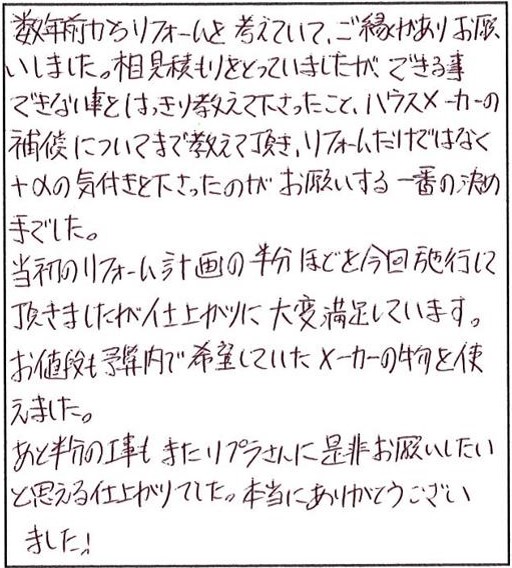 数年前からリフォームを考えていて、ご縁がありお願
いしました。相見積もりをとっていましたが、できる事
できない事とはっきり教えて下さったこと、ハウスメーカーの
補償についてまで教えて頂き、リフォームだけではなく
+αの気付きを下さったのがお願いする一番の決め
手でした。
当初のリフォーム計画の半分ほどを今回施行して
頂きましたが仕上がりに大変満足しています。
お値段も予算内で希望していたメーカーの物を使
えました。
あと半分の工事もまたリプラさんに是非お願いしたい
と思える仕上がりでした。本当にありがとうござい
ました!